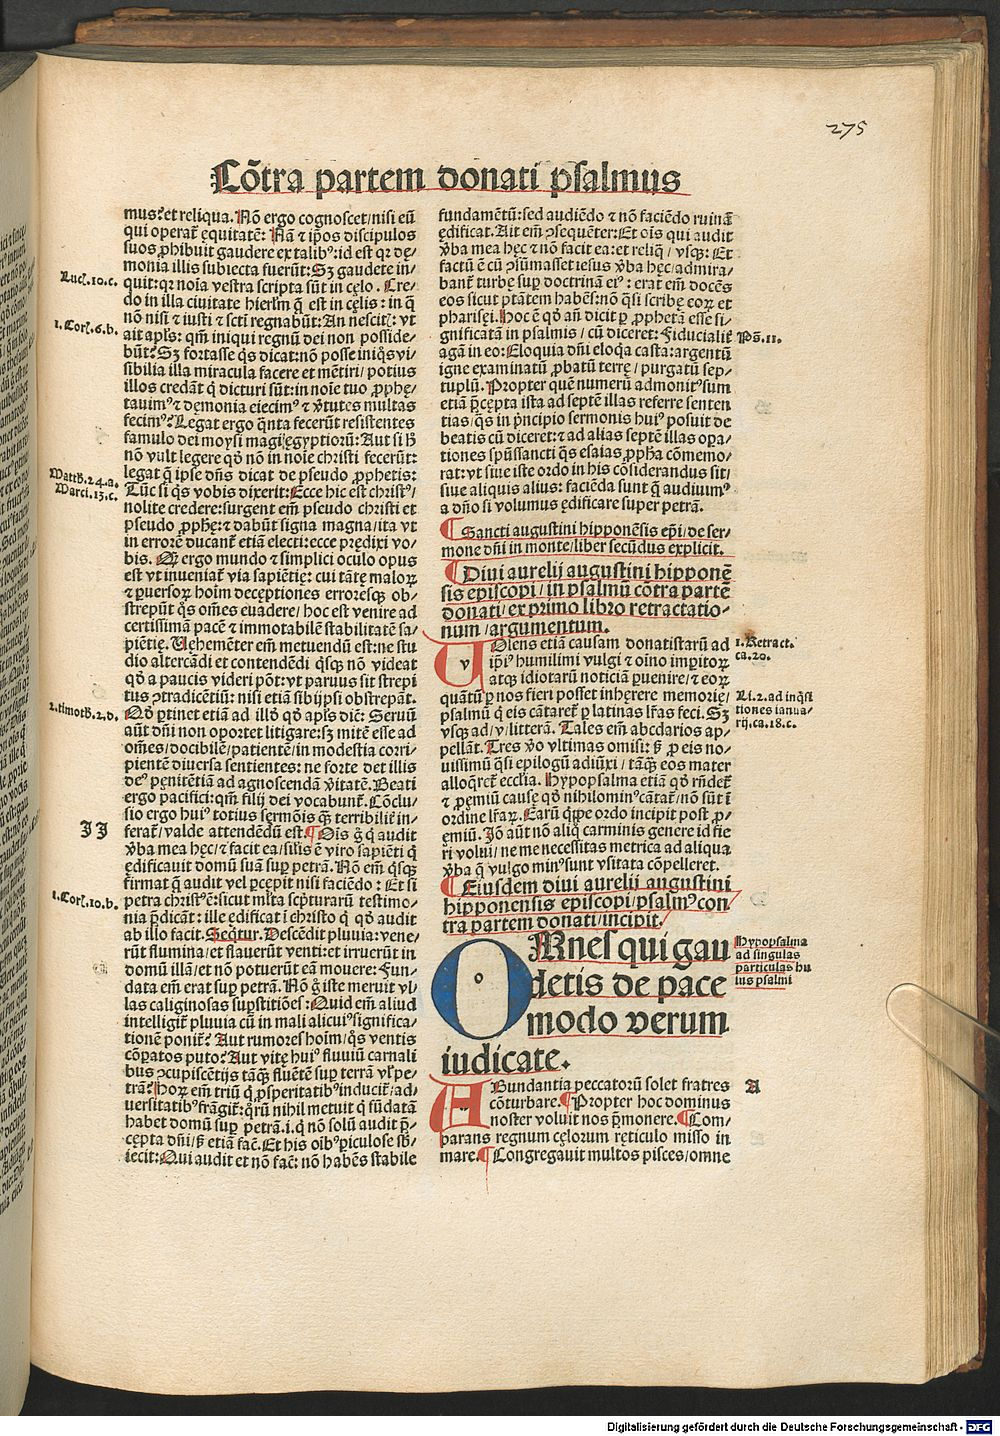 275
Cõtra partem donati psalmus
mus? et reliqua. Nõ ergo cognoscet/nisi eũ
qui operat᷑ ęquitatẽ: Nã ⁊ ip̃os discipulos
suos ꝓhibuit gaudere ex talibꝰ: id est qꝛ dę-
monia illis subiecta fuerũt: Sꝫ gaudete in-
Luc̃.10.c.
quit: qꝛ noĩa vestra scripta sũt in cęlo. Cre-
do in illa ciuitate hierłm q̃ est in cęlis: in q̃
nõ nisi ⁊ iusti ⁊ scti regnabũt: An nescit̃: vt
1.Corĩ.6.b.
ait apłs: qm̃ iniqui regnũ dei non posside-
bũt? Sꝫ fortasse q̃s dicat: nõ posse iniq̃s vi-
sibilia illa miracula facere et mẽtiri/potius
illos credãt q̃ dicturi sũt: in noĩe tuo ꝓphę-
tauimꝰ ⁊ dęmonia eiecimꝰ ⁊ v̾tutes multas
fecimꝰ? Legat ergo q̃nta fecerũt resistentes
famulo dei moysi magi ęgyptiorũ: Aut si ɦ
nõ vult legere qđ nõ in noĩe christi fecerũt:
Matth.24.a.
Marci.13.c.
legat q̃ ipse dñs dicat de pseudo ꝓphetis:
Tũc si q̃s vobis dixerit: Ecce hic est christꝰ/
nolite credere: surgent em̃ pseudo christi et
pseudo ꝓphę: ⁊ dabũt signa magna/ita vt
in errorẽ ducant᷑ etiã electi: ecce prędixi vo-
bis. Q̃ ergo mundo ⁊ simplici oculo opus
est vt inueniat᷑ via sapiẽtię: cui tãtę maloꝝ
⁊ ꝑuersoꝝ hoĩm deceptiones erroresq̃ ob-
strepũt q̃s om̃es euadere/hoc est venire ad
certissimã pacẽ ⁊ immotabilẽ stabilitatẽ sa-
piẽtię. Uęhemẽter em̃ metuendũ est: ne stu
dio altercãdi et contendẽdi q̃sq̃ nõ videat
qđ a paucis videri põt: vt paruus sit strepi
tus ꝯtradicẽtiũ: nisi etiã sibijpsi obstrepãt.
2.timoth.2.d.
Qđ ꝑtinet etiã ad illđ qđ apłs dic̃: Seruũ
aũt dñi non oportet litigare: sꝫ mitẽ esse ad
om̃es/docibilẽ/patientẽ/in modestia corri
pientẽ diuersa sentientes: ne forte det illis
deꝰ pęnitẽtiã ad agnoscendã v̾itatẽ. Beati
ergo pacifici: qm̃ filij dei vocabunt᷑. Cõclu
sio ergo huiꝰ totius sermõis q̃ terribilit̾ in-
II
ferat᷑/valde attendẽdũ est. ¶ Oĩs g̃ q̃ audit
v̾ba mea hęc/⁊ facit ea/sił̃is ẽ viro sapiẽti q̃
ędificauit domũ suã suꝑ petrã. Nõ em̃ q̃sq̃
firmat q̃ audit vel ꝑcepit nisi faciẽdo: Et si
1.Corĩ.10.b.
petra christꝰ ẽ: sicut młta sc̃pturarũ testimo-
nia p̃dicãt: ille ędificat ĩ christo q̃ qđ audit
ab illo facit. Seq̃tur. Descẽdit pluuia: vene-
rũt flumina/et flauerũt venti: et irruerũt in
domũ illã/et nõ potuerũt eã mouere: Fun-
data em̃ erat suꝑ petrã. Nõ g̃ iste meruit vl-
las caliginosas suꝑstitiões: Quid em̃ aliud
intelligit᷑ pluuia cũ in mali alicuiꝰ significa/
tionẽ ponit᷑? Aut rumores hoĩm/q̃s ventis
cõꝑatos puto? Aut vitę huiꝰ fluuiũ carnali
bus ꝯcupiscẽtijs tãq̃ fluẽtẽ suꝑ terrã v̾l pe-
trã? Hoꝝ em̃ triũ q̃ ꝓsperitatibꝰ inducit᷑/ad/
uersitatibꝰ frãgit᷑: qꝛũ nihil metuit q̃ fũdatã
habet domũ suꝑ petrã. i. q̃ nõ solũ audit p̃-
cępta dñi/ɦ etiã fac̃. Et his oĩbꝰ ꝑiculose sb̃-
iecit: Qui audit et nõ fac̃: nõ habẽs stabile
fundamẽtũ: sed audiẽdo ⁊ nõ faciẽdo ruinã
ędificat. Ait em̃ ꝯsequẽter: Et oĩs qui audit
v̾ba mea hęc ⁊ nõ facit ea: et reliq̃/vsq̃: Et
factũ ẽ cũ ꝯsũmasset iesus v̾ba hęc/admira-
bant᷑ turbę suꝑ doctrinã eiꝰ: erat em̃ docẽs
eos sicut ptãtem habẽs: nõ q̃si scribę eoꝝ et
pharisęi. Hoc ẽ qđ añ dicit ꝑ ꝓphetã esse si-
gnificatã in psalmis/cũ diceret: Fiducialit᷑
Ps̃.11.
agã in eo: Eloquia dñi eloq̃a casta: argentũ
igne examinatũ ꝓbatũ terrę/purgatũ sep-
tuplũ. Propter quẽ numerũ admonitꝰ sum
etiã p̃cępta ista ad septẽ illas referre senten
tias/q̃s in p̃ncipio sermonis huiꝰ posuit de
beatis cũ diceret: ⁊ ad alias septẽ illas oꝑa-
tiones spũssancti q̃s esaias ꝓph̃a cõmemo-
rat: vt siue iste ordo in his cõsiderandus sit/
siue aliquis alius: facienda sunt q̃ audiuimꝰ
a dño si volumus ędificare super petrã.
¶ Sancti augustini hipponẽsis ep̃i/de ser-
mone dñi in monte/liber secũdus explicit.
¶ Diui aurelij augustini hipponẽ
sis episcopi/in psalmũ cõtra partẽ
donati/ex primo libro retractatio-
num/argumentum.
1.Retract.
ca.20.
UOlens etiã causam donatistarũ ad
ip̃iꝰ humilimi vulgi ⁊ oĩno imꝑitoꝝ
atq̃ idiotarũ noticiã ꝑuenire/⁊ eoꝝ
Li.2.ad inq̃si
tiones ianua-
rij.ca.18.c.
quãtũ ꝑ nos fieri posset inhęrere memorię/
psalmũ q̃ eis cãtaret᷑ ꝑ latinas lr̃as feci. Sꝫ
vsq̃ ad/v/litterã. Tales em̃ abcdarios ap-
pellãt. Tres v̾o vltimas omisi: ɦ ꝓ eis no-
uissimũ q̃si epilogũ adiũxi/tãq̃ eos mater
alloq̃ret᷑ ecclĩa. Hypopsalma etiã qđ rñdet᷑
⁊ ꝓęmiũ causę qđ nihilominꝰ cãtat᷑/nõ sũt ĩ
ordine lr̃aꝝ. Earũ q̃ppe ordo incipit post ꝓ-
emiũ. Iõ aũt nõ aliq̃ carminis genere id fie
ri volui/ne me necessitas metrica ad aliqua
v̾ba q̃ vulgo minꝰ sunt vsitata cõpelleret.
¶ Eiusdem diui aurelij augustini
hipponensis episcopi/psalmꝰ con
tra partem donati/incipit.
Hypopsalma
ad singulas
particulas hu
ius psalmi
OMnes qui gau
detis de pace
modo verum
iudicate.
A
ABundantia peccatorũ solet fratres
cõturbare. ¶ Propter hoc dominus
noster voluit nos p̃monere. ¶ Com-
parans regnum cęlorum reticulo misso in
mare. ¶ Congregauit multos pisces/omne
Digitalisierung gefördert durch die Deutsche Forschungsgemeinschaft - DFG